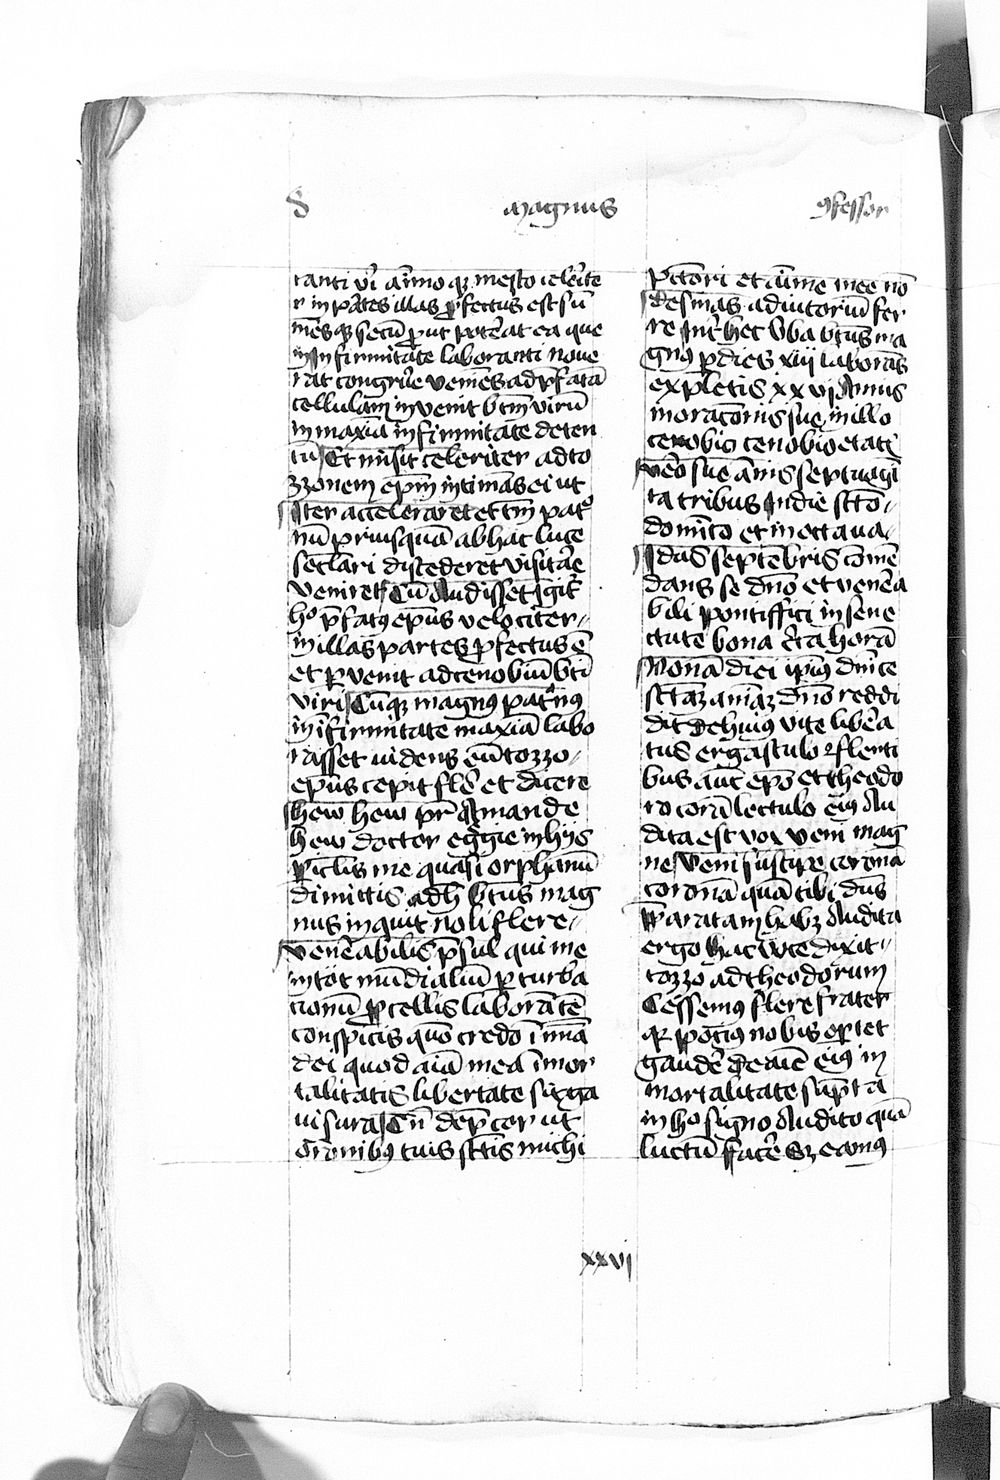 S Magnus 9fessor
tanti vi͛ a͞nimo qȝ mesto cele͛ite
r in p͛artes illas ꝓfectus est su͞
me͞s qȝ secu͞ ꝓut pot͛erat ea que
in infirmitate laboranti noue
rat congr͛ue venie͞s ad p͞fata͞
cellulam invenit bt͞m viru͞
in maxi͞a infirmitate deten
tu͞ Et misit celeriter ad to
zzonem ep͞m intimas ei ut
Iter acceleraret et t͞m patͦ
nu͞ priusqua͞ ab hac luce
sec͞lari discederet visita͛e
veniret Cu͞ Audisset igit͛
hͦ p͞fatꝰ ep͞us velociter
in illas partes ꝓfectus e͞
et ꝑvenit ad cenobiu͞ bt͞i
viri Cu͞qȝ magnꝰ patr͛nꝰ
in i͞firmitate maxia͞ labo
rasset videns eu͞ tozzo
ep͞us cepit fle͛ et dicere
hew hew pr͞ Amande
hew doctor eg͛gie in hijs
ꝑic͞lis me quasi orphanu͞
dimittis ad h͞ bt͞us mag
nus inquit noli flere
vene͛abilis p͞sul qui me
in tot mu͞dialiu͞ ꝑturba
tionu͞ ꝓcellis labora͞te͞
conspicis quo͞ credo i͞ ma͞
dei quod ai͞a mea i͞mor
talitatis libertate sit ga
visura Cu͞ dep͛cor ut
oro͞nibꝰ tuis sc͞tis michi
pct͞ori et ai͞me mee no͞
desinas adiutoriu͞ fer
re Int͛ hec v͛ba bt͞us ma
gnꝰ ꝑ dies xiij laboras
expletis xxvj Annis
moraco͞nis sue in illo
cenobio cenobio etati͞
ve͛o sue a͞nis septuagi͞
ta tribus In die sc͞to
do͞mico et in octava
Idus septembris co͞me͞
dans se dn͞o et vene͛a
bili pontiffici in sene
ctute bona c͛ta hora͞
Nona͞ diei ipi͞ꝰ dni͞ce
sc͞taȝ ai͞aȝ dn͞o reddi
dit de huiꝰ vite libe͛a
tus ergastulo flenti
bus aut͞ ep͞o et theodo
ro cora͞ lectulo eiꝰ Au
dita est vox veni mag
ne veni suscipe corona͞
corona͞ qua͞ tibi dn͞s
p͞paratam habȝ Audita
ergo hac voce dixit
tozzo ad theodorum
Cessemꝰ flere frater
qꝛ poti͛ꝰ nobis oportet
gaude͛ de ai͞e eiꝰ in
mortalitate su͞pta
in hͦ signo Audito qua͞
luctu͞ face͛ Sȝ eamꝰ
xxvj